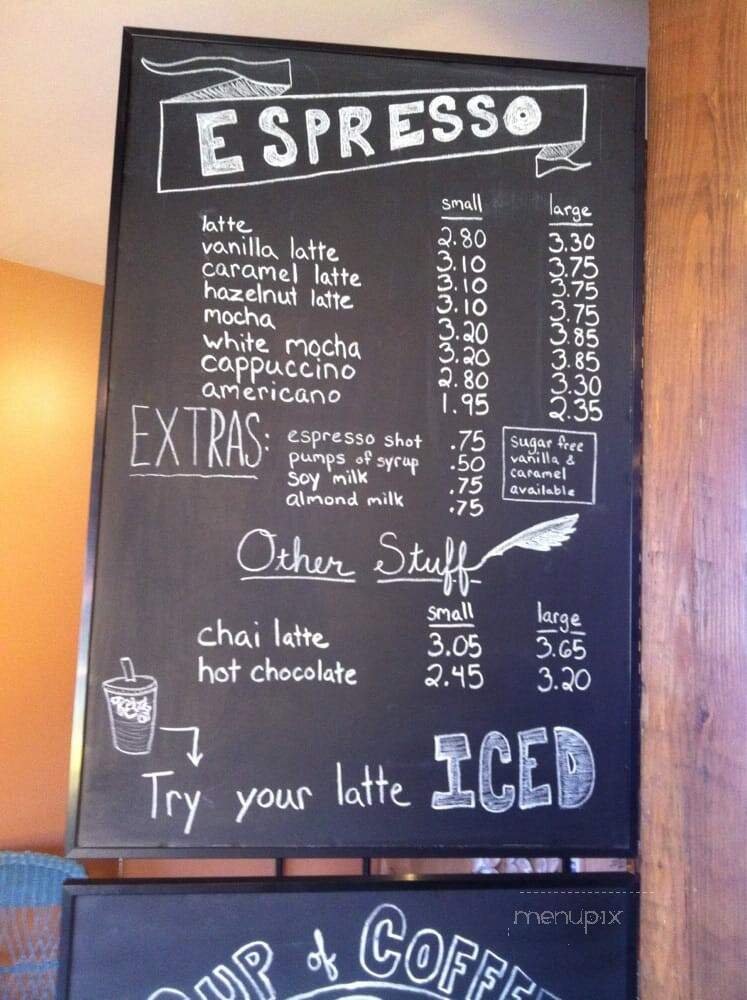 ESPRESSO
small large
latte 2.80 3.30
vanilla latte 3.10 3.75
caramel latte 3.10 3.75
hazelnut latte 3.10 3.75
mocha 3.20 3.85
white mocha 3.20 3.85
cappuccino 2.80 3.30
americano 1.95 2.35
EXTRAS:
espresso shot .75
pumps of syrup .50
soy milk .75
almond milk .75
sugar free
vanilla &
caramel
available
Other Stuff
small large
chai latte 3.05 3.65
hot chocolate 2.45 3.20
Try your latte ICED
menupix
CUP of COFFEE